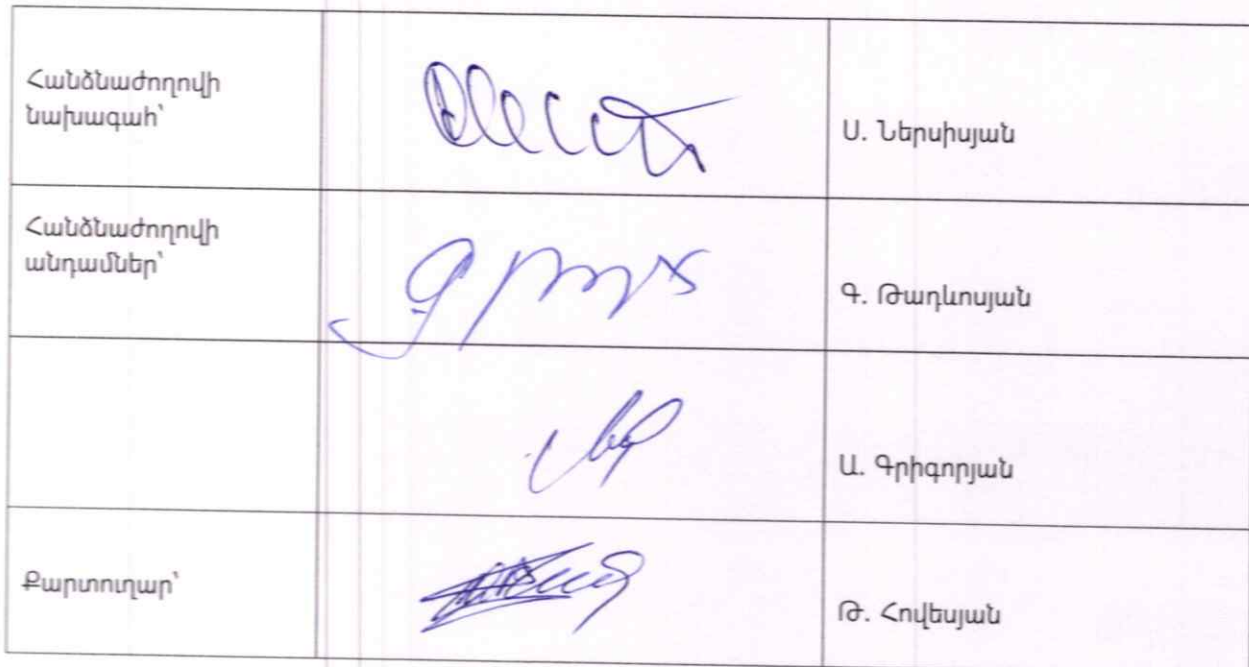 Հանձնաժողովի
նախագահ՝
Ս. Ներսիսյան
Հանձնաժողովի
անդամներ՝
Գ. Թադևոսյան
Ա. Գրիգորյան
Քարտուղար՝
Թ. Հովեսյան